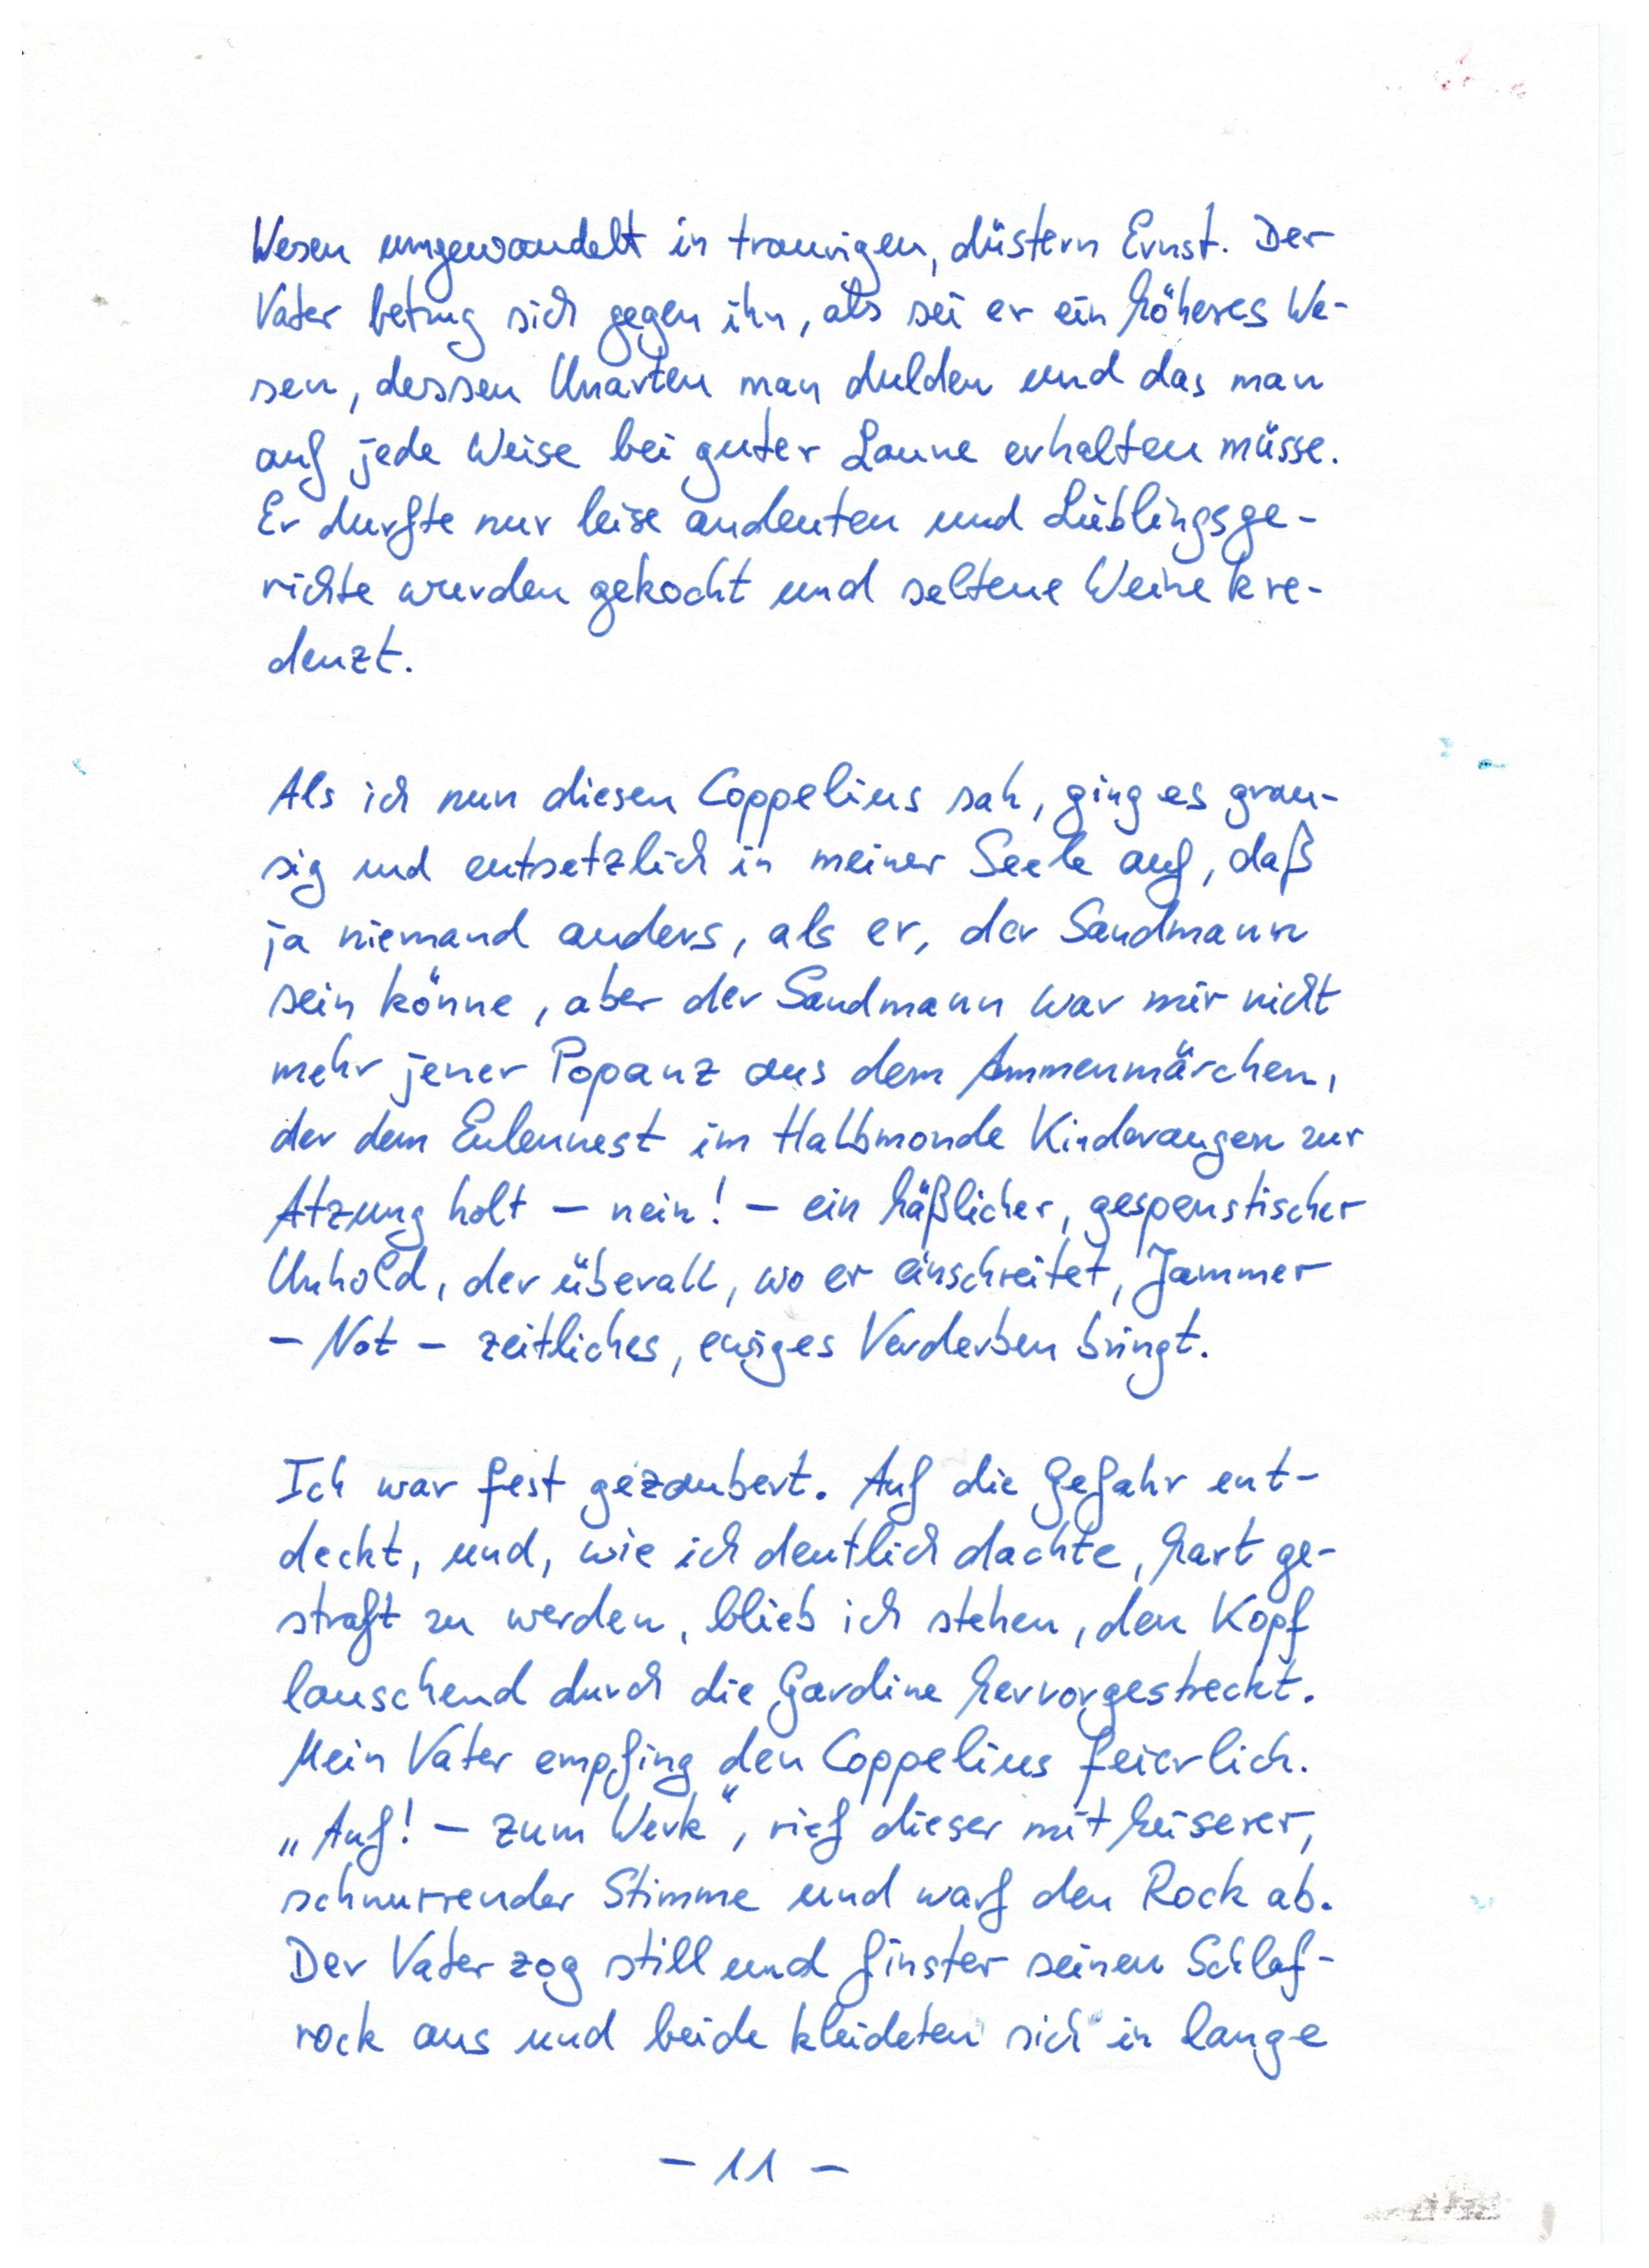 Wesen umgewandelt in traurigen, düstern Ernst. Der
Vater betrug sich gegen ihn, als sei er ein höheres We-
sen, dessen Unarten man dulden und das man
auf jede Weise bei guter Laune erhalten müsse.
Er durfte nur leise andeuten und Lieblingsge-
richte wurden gekocht und seltene Weine kre-
denzt.
Als ich nun diesen Coppelius sah, ging es grau-
sig und entsetzlich in meiner Seele auf, daß
ja niemand anders, als er, der Sandmann
sein könne, aber der Sandmann war mir nicht
mehr jener Popanz aus dem Ammenmärchen,
der dem Eulennest im Halbmonde Kinderaugen zur
Atzung holt – nein! – ein häßlicher, gespenstischer
Unhold, der überall, wo er einschreitet, Jammer
– Not – zeitliches, ewiges Verderben bringt.
Ich war fest gezaubert. Auf die Gefahr ent-
deckt, und, wie ich deutlich dachte, hart ge-
straft zu werden, blieb ich stehen, den Kopf
lauschend durch die Gardine hervorgestreckt.
Mein Vater empfing den Coppelius feierlich.
„Auf! – zum Werk“, rief dieser mit heiserer,
schnurrender Stimme und warf den Rock ab.
Der Vater zog still und finster seinen Schlaf-
rock aus und beide kleideten sich in lange
– 11 –